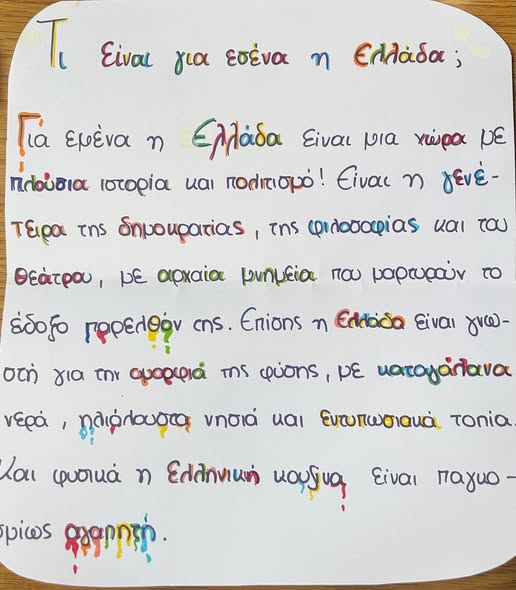 Τι είναι για εσένα η Ελλάδα;
Για εμένα η Ελλάδα είναι μια χώρα με
πλούσια ιστορία και πολιτισμό! Είναι η γενέ-
τειρα της δημοκρατίας, της φιλοσοφίας και του
θεάτρου, με αρχαία μνημεία που μαρτυρούν το
ένδοξο παρελθόν της. Επίσης η Ελλάδα είναι γνω-
στή για την ομορφιά της φύσης, με καταγάλανα
νερά, ηλιόλουστα νησιά και εντυπωσιακά τοπία.
Και φυσικά η Ελληνική κουζίνα είναι παγκο-
σμίως αγαπητή.